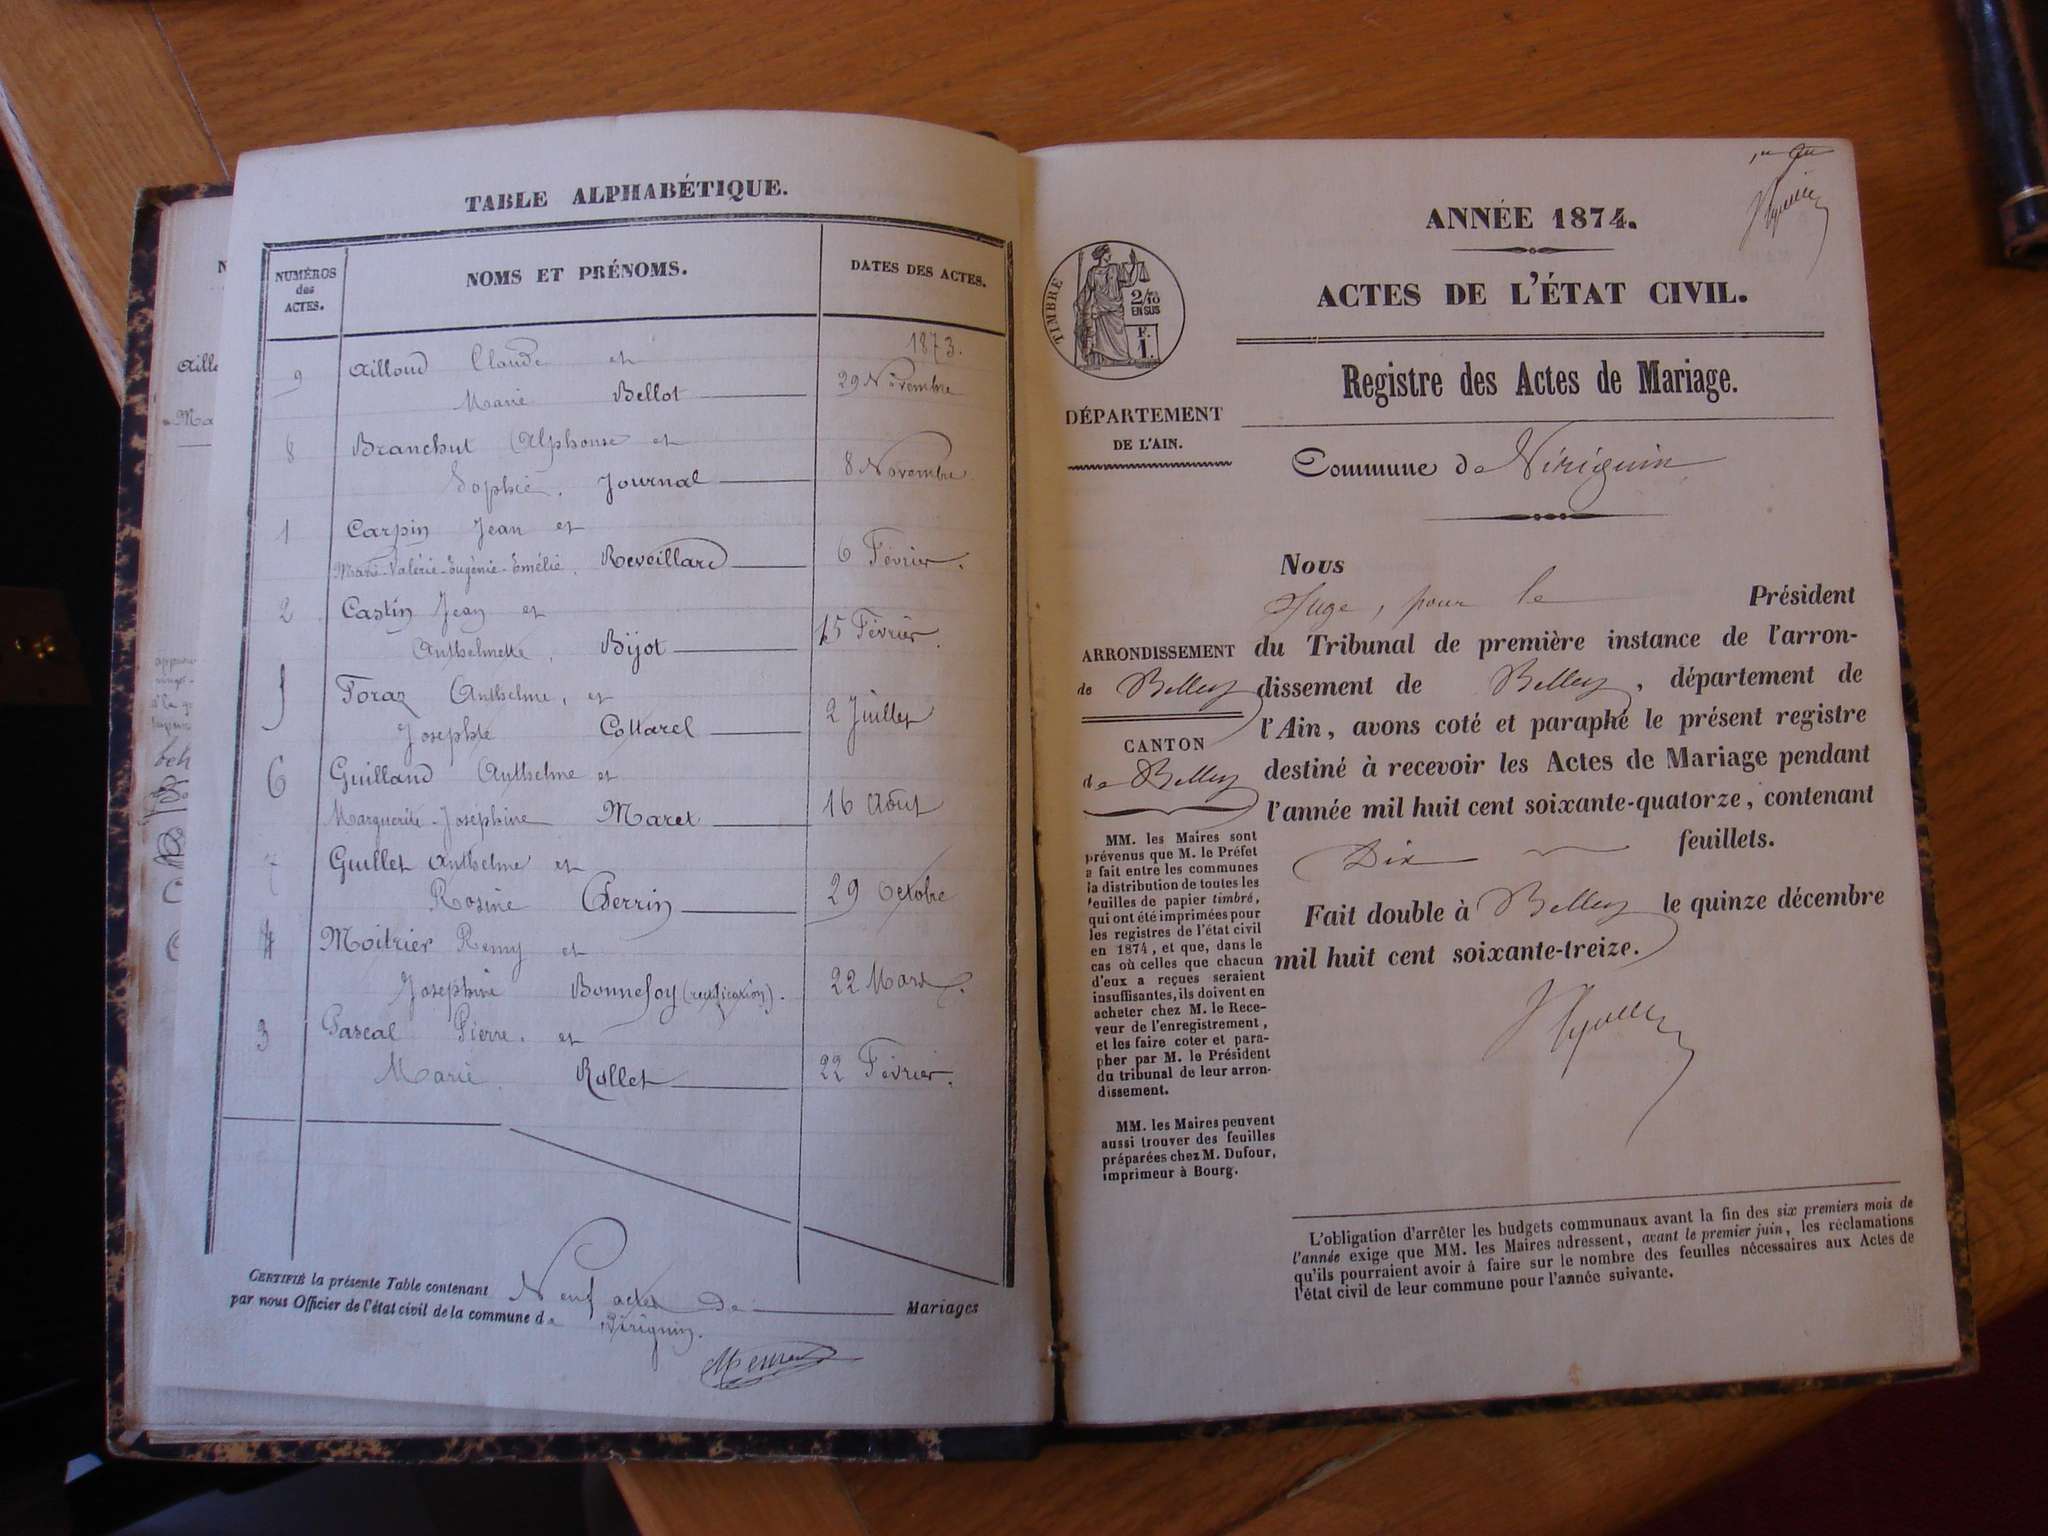 TABLE ALPHABÉTIQUE.
NUMÉROS des ACTES.
NOMS ET PRÉNOMS.
DATES DES ACTES.
1873.
9 Ailloud Claude et
Marie Bellot 29 Novembre
8 Branchut Alphonse et
Sophie. Journal 8 Novembre
1 Carpin Jean et
Marie-Valérie-Eugènie-Emélie. Reveillard 6 Février.
2 Castin Jean et
Anthelmette. Bijot 15 Février.
5 Foraz Anthelme, et
Josephte Cottarel 2 Juillet
6 Guilland Anthelme et
Marguerite-Joséphine Maret 16 Août
7 Guillet Anthelme et
Rosine Perrin 29 Octobre
4 Moitrier Remy et
Josephine Bonnefoy (rectification). 22 Mars
3 Pascal Pierre. et
Marie Rollet 22 Février.
CERTIFIÉ la présente Table contenant Neuf actes de Mariages
par nous Officier de l'état civil de la commune de Virignin.
ANNÉE 1874.
ACTES DE L'ÉTAT CIVIL.
TIMBRE
2/10
EN SUS
F.
1.
Registre des Actes de Mariage.
DÉPARTEMENT
DE L'AIN.
Commune de Virignin
Nous
Juge, pour le Président
du Tribunal de première instance de l'arron-
dissement de Belley, département de
l'Ain, avons coté et paraphé le présent registre
destiné à recevoir les Actes de Mariage pendant
l'année mil huit cent soixante-quatorze, contenant
Dix feuillets.
Fait double à Belley le quinze décembre
mil huit cent soixante-treize.
ARRONDISSEMENT
de Belley
CANTON
de Belley
MM. les Maires sont
prévenus que M. le Préfet
a fait entre les communes
la distribution de toutes les
feuilles de papier timbré,
qui ont été imprimées pour
les registres de l'état civil
en 1874, et que, dans le
cas où celles que chacun
d'eux a reçues seraient
insuffisantes, ils doivent en
acheter chez M. le Rece-
veur de l'enregistrement,
et les faire coter et para-
pher par M. le Président
du tribunal de leur arron-
dissement.
MM. les Maires peuvent
aussi trouver des feuilles
préparées chez M. Dufour,
imprimeur à Bourg.
L'obligation d'arrêter les budgets communaux avant la fin des six premiers mois de
l'année exige que MM. les Maires adressent, avant le premier juin, les réclamations
qu'ils pourraient avoir à faire sur le nombre des feuilles nécessaires aux Actes de
l'état civil de leur commune pour l'année suivante.